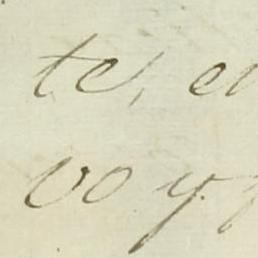 te, e
voy